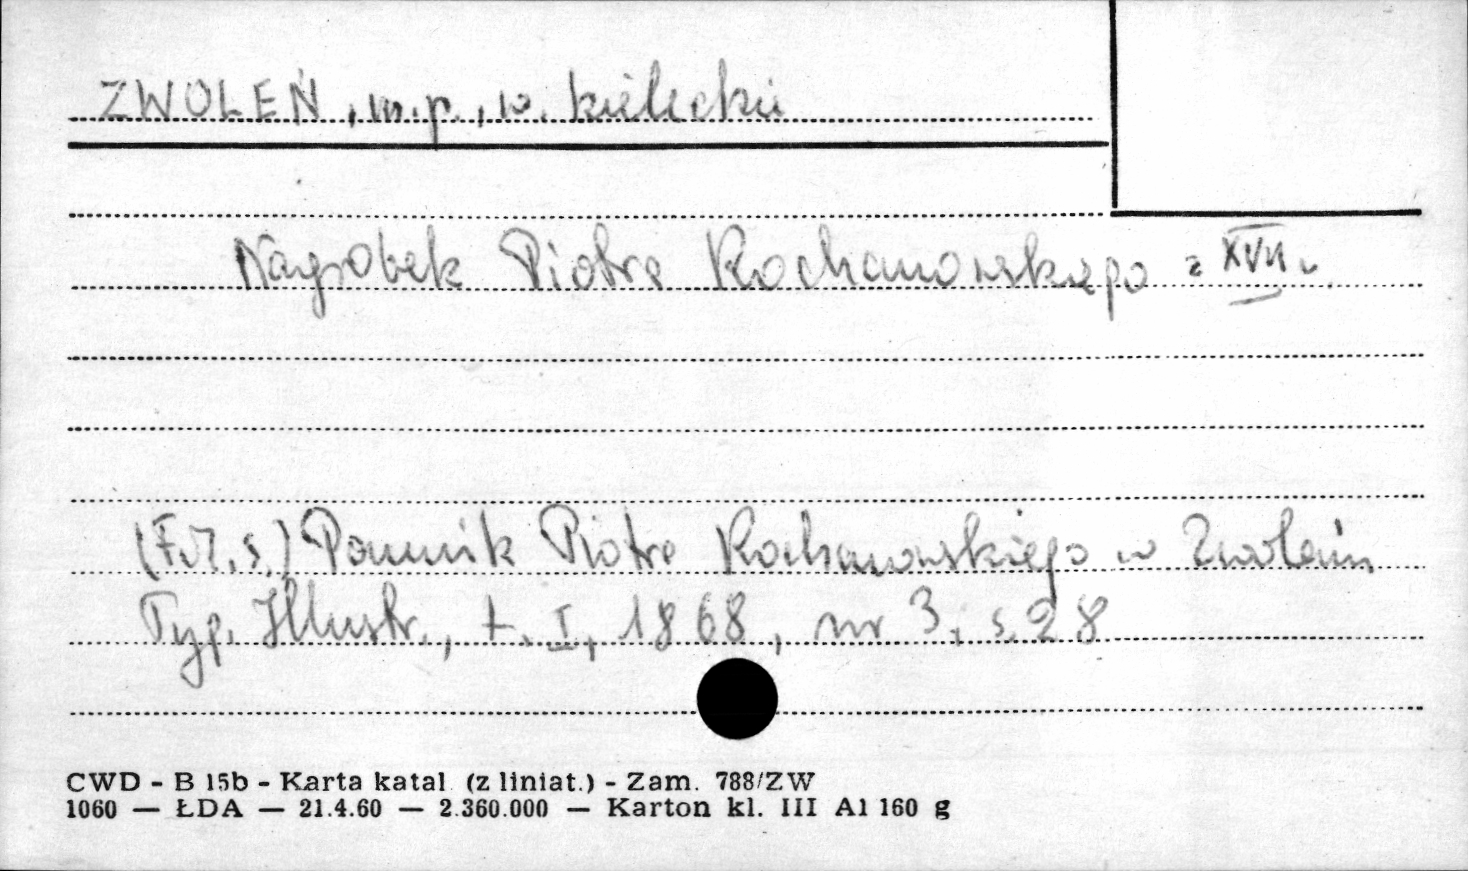 ZWOLEŃ, m.p., w. kieleckie
Nagrobek Piotra Kochanowskiego z XVII w.
(F.M.S.) Pomnik Piotra Kochanowskiego w Zwoleniu
Tyg. Illustr., t. I, 1868, nr 3, s. 28
CWD - B 15b - Karta katal. (z liniat.) - Zam. 788/ZW
1060 — ŁDA — 21.4.60 — 2.360.000 — Karton kl. III A1 160 g